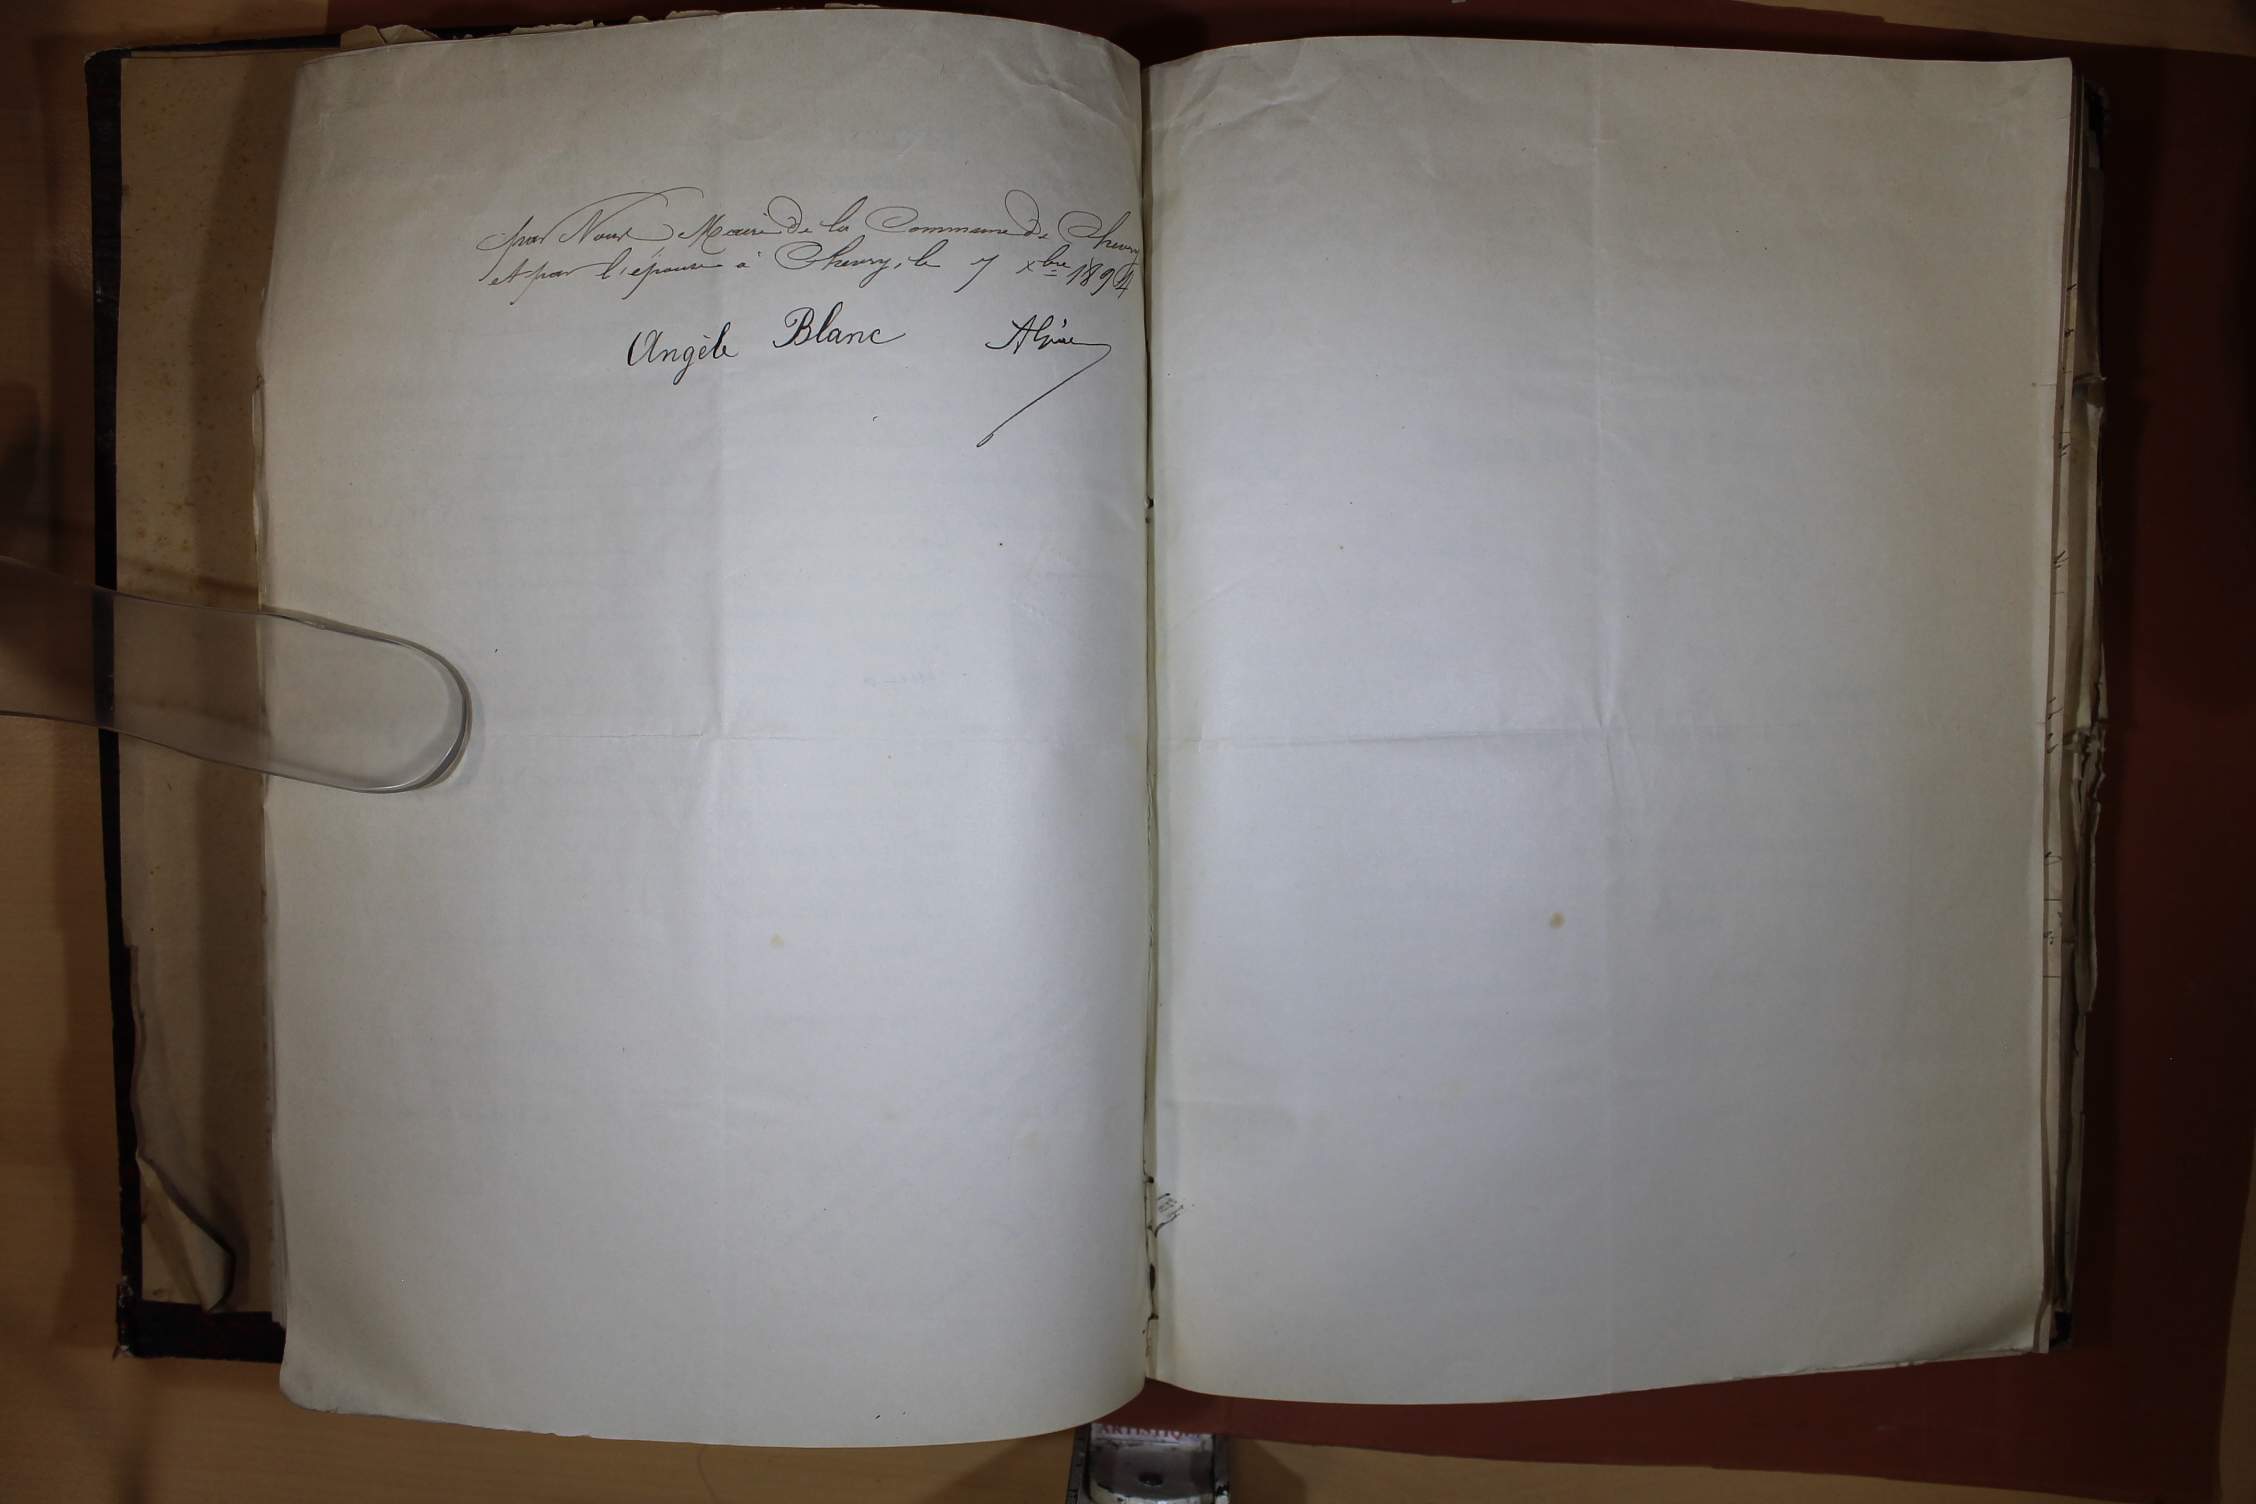 par Nous Maire de la Commune de Chevry
et par l'épouse à Chevry, le 7 Xbre 1894
Angèle Blanc
ARTISTIQUE